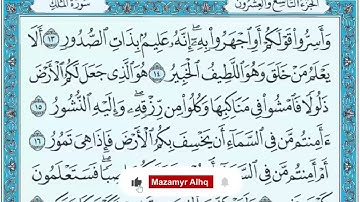 الجزء التاسع والعشرون سورة الملك
وَأَسِرُّوا۟ قَوْلَكُمْ أَوِ ٱجْهَرُوا۟ بِهِۦٓ ۖ إِنَّهُۥ عَلِيمٌۢ بِذَاتِ ٱلصُّدُورِ ١٣ أَلَا
يَعْلَمُ مَنْ خَلَقَ وَهُوَ ٱللَّطِيفُ ٱلْخَبِيرُ ١٤ هُوَ ٱلَّذِى جَعَلَ لَكُمُ ٱلْأَرْضَ
ذَلُولًا فَٱمْشُوا۟ فِى مَنَاكِبِهَا وَكُلُوا۟ مِن رِّزْقِهِۦ ۖ وَإِلَيْهِ ٱلنُّشُورُ ١٥
ءَأَمِنتُم مَّن فِى ٱلسَّمَآءِ أَن يَخْسِفَ بِكُمُ ٱلْأَرْضَ فَإِذَا هِىَ تَمُورُ ١٦
أَمْ أَمِنتُم مَّن فِى ٱلسَّمَآءِ أَن فَسَتَعْلَمُونَ
Mazamyr Alhq